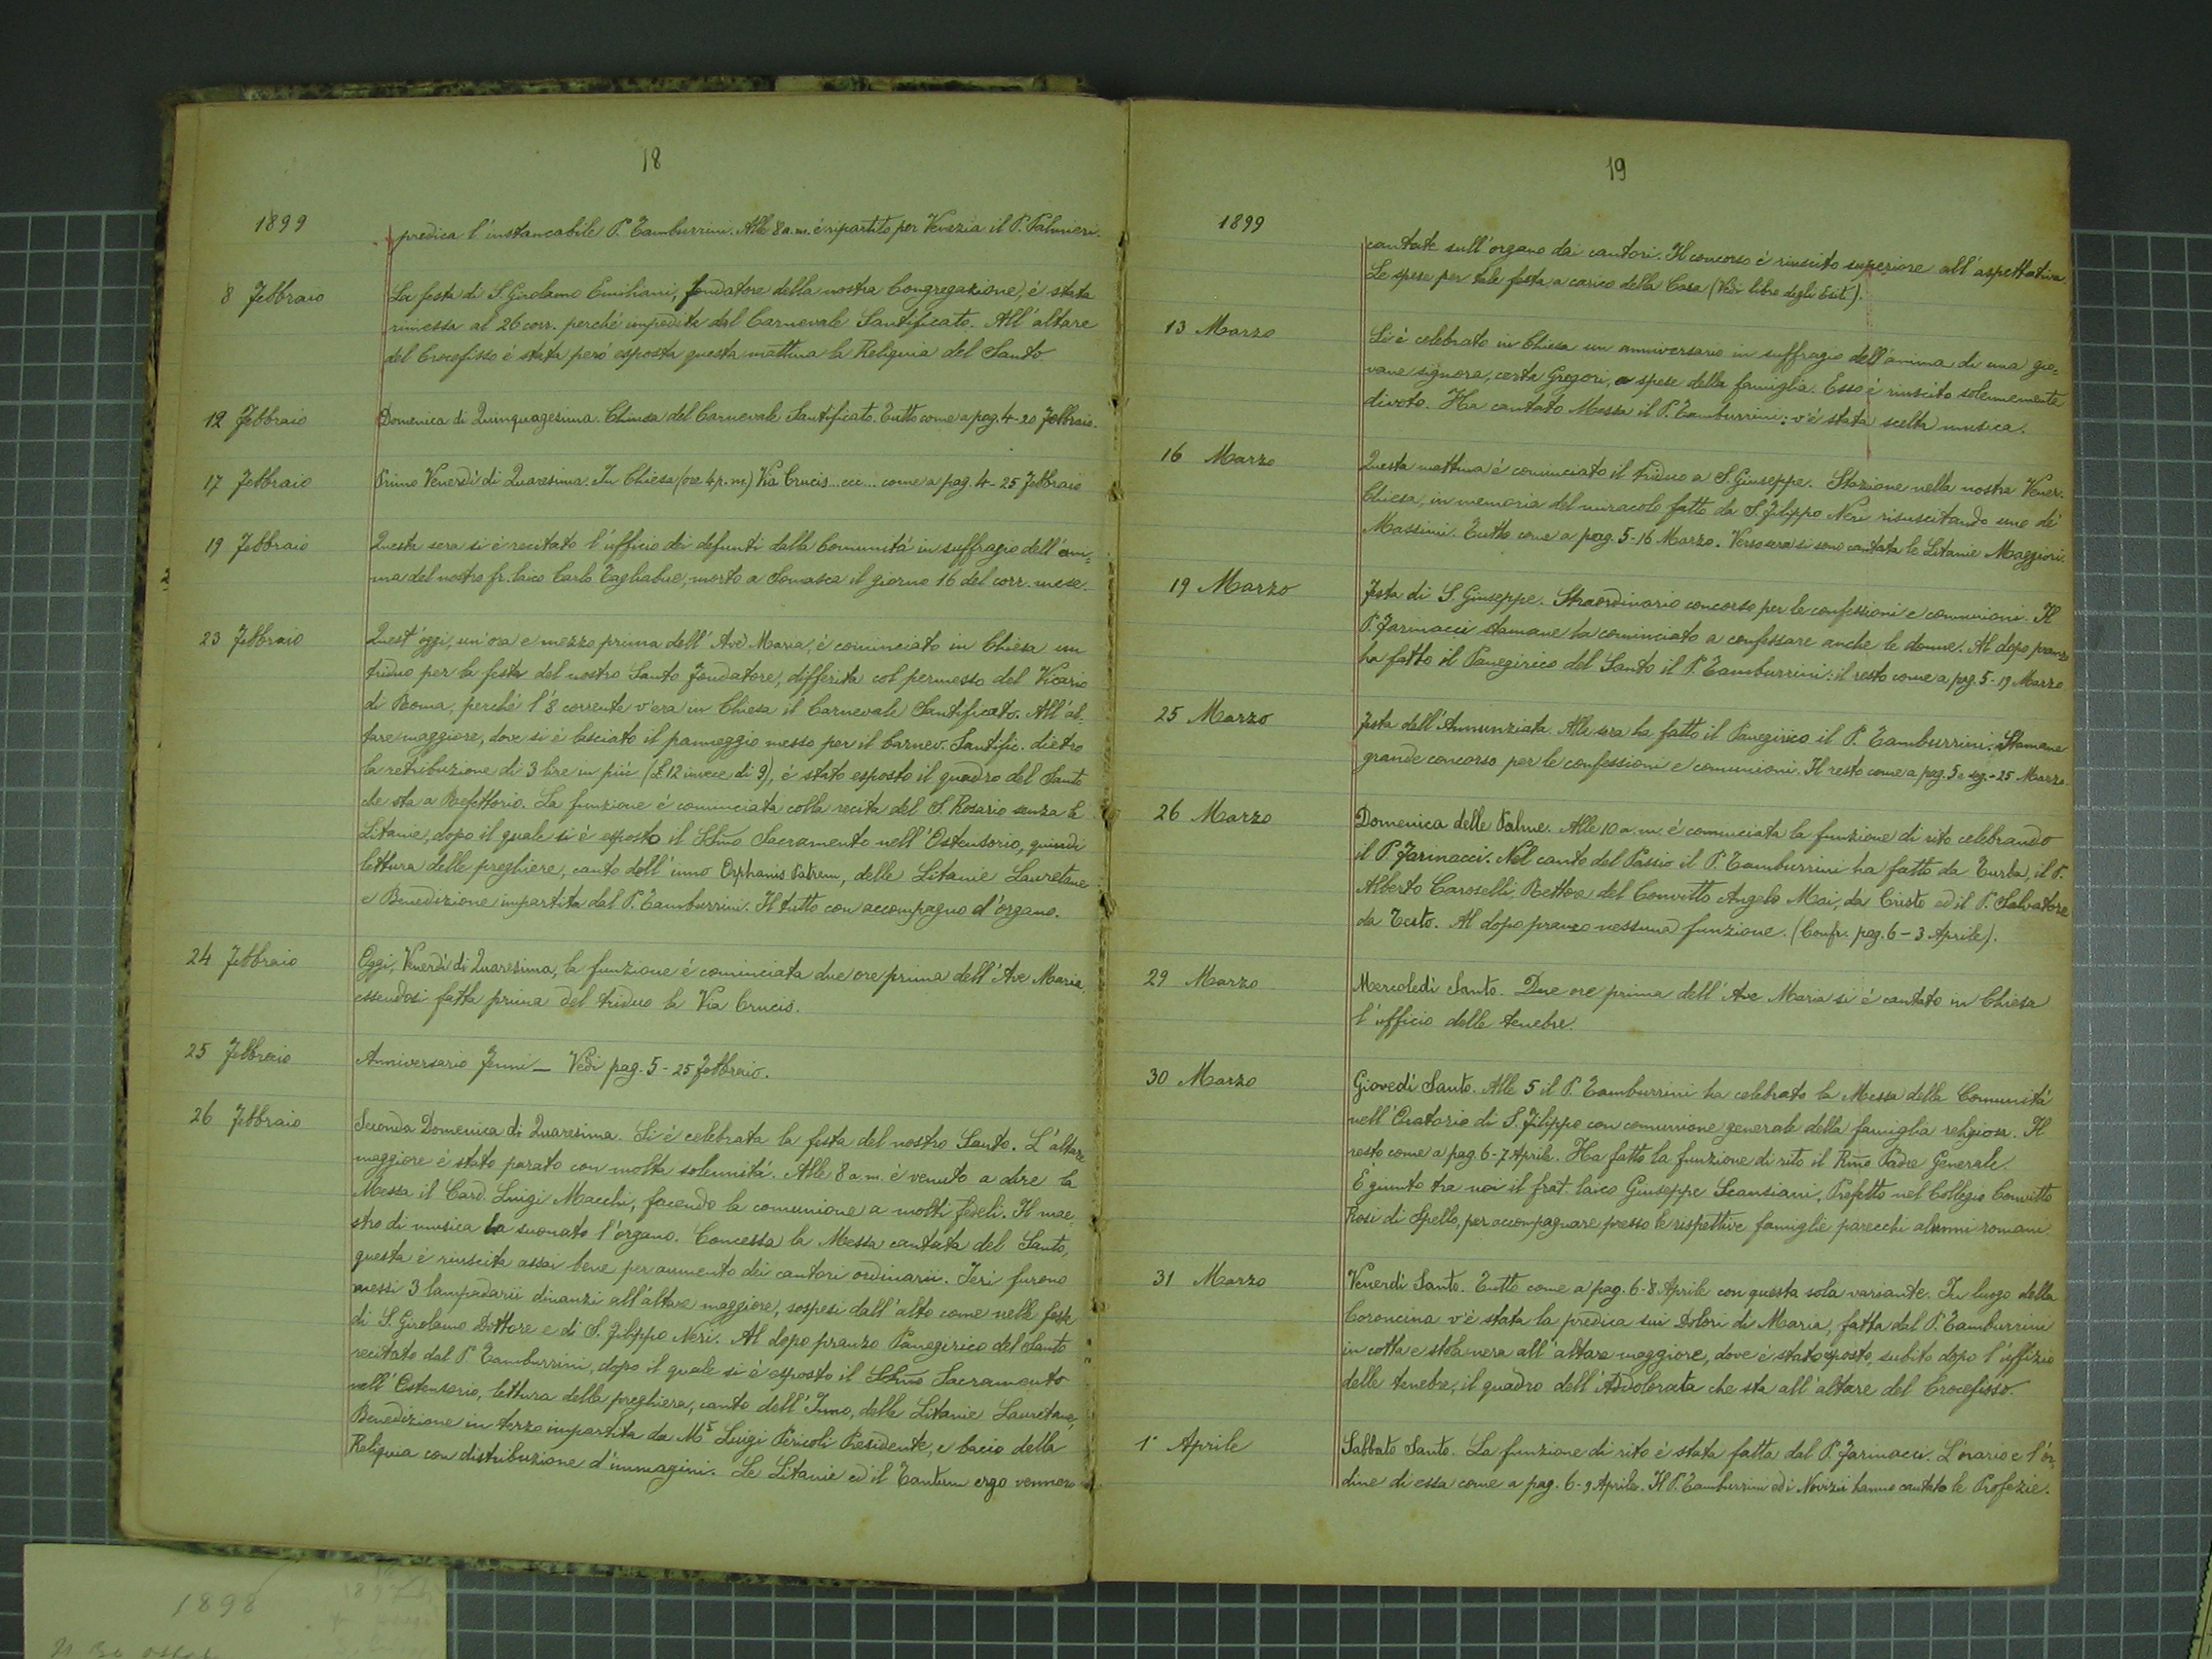 18
1899
predica l'instancabile P. Tamburrini. Alle 8 a.m. é ripartito per Venezia il P. Palmieri.
8 Febbraio
La festa di S. Girolamo Emiliani, fondatore della nostra Congregazione, é stata
rimessa al 26 corr. perché impedita dal Carnevale Santificato. All'altare
del Crocefisso é stata peró esposta questa mattina la Reliquia del Santo.
12 Febbraio
Domenica di Quinquagesima. Chiusa del Carnevale Santificato. Tutto come a pag. 4-20 Febbraio.
17 Febbraio
Primo Venerdí di Quaresima. In Chiesa (ore 4 p.m.) Via Crucis... ecc... come a pag. 4-25 Febbraio
19 Febbraio
Questa sera si é recitato l'ufficio dei defunti dalla Comunitá in suffragio dell'ani=
ma del nostro fr. laico Carlo Tagliabue, morto a Somasca il giorno 16 del corr. mese.
23 Febbraio
Quest'oggi, un'ora e mezzo prima dell'Ave Maria, é cominciato in Chiesa un
triduo per la festa del nostro Santo Fondatore, differita col permesso del Vicario
di Roma, perché l'8 corrente v'era in Chiesa il Carnevale Santificato. All'al-
tare maggiore, dove si é lasciato il panneggio messo per il Carnev. Santific. dietro
la retribuzione di 3 lire in piú (£12 invece di 9), é stato esposto il quadro del Santo
che sta a Refettorio. La funzione é cominciata colla recita del S. Rosario senza le
Litanie, dopo il quale si é esposto il SSmo Sacramento nell'Ostensorio, quindi
lettura delle preghiere, canto dell'inno Orphanis Patrem, delle Litanie Lauretane
e Benedizione impartita dal P. Tamburrini. Il tutto con accompagno d'organo.
24 Febbraio
Oggi, Venerdí di Quaresima, la funzione é cominciata due ore prima dell'Ave Maria,
essendosi fatta prima del triduo la Via Crucis.
25 Febbraio
Anniversario Jenni — Vedi pag. 5-25 Febbraio.
26 Febbraio
Seconda Domenica di Quaresima. Si é celebrata la festa del nostro Santo. L'altare
maggiore é stato parato con molta solennitá. Alle 8 a.m. é venuto a dire la
Messa il Card. Luigi Macchi, facendo la comunione a molti fedeli. Il mae
stro di musica ha suonato l'organo. Concessa la Messa cantata del Santo,
questa é riuscita assai bene per aumento dei cantori ordinarii. Ieri furono
messi 3 lampadarii dinanzi all'altare maggiore, sospesi dall'alto come nelle feste
di S. Girolamo Dottore e di S. Filippo Neri. Al dopo pranzo Panegirico del Santo
recitato dal P. Tamburrini, dopo il quale si é esposto il SSmo Sacramento
nell'Ostensorio, lettura della preghiera, canto dell'Inno, delle Litanie Lauretane,
Benedizione in terzo impartita da Mr Luigi Pericoli Presidente, e bacio della
Reliquia con distribuzione d'immagini. Le Litanie ed il Tantum ergo vennero
19
1899
cantate sull'organo dai cantori. Il concorso é riuscito superiore all'aspettativa.
Le spese per tale festa a carico della Casa (Vedi libro degli Esiti).
13 Marzo
Si é celebrato in Chiesa un anniversario in suffragio dell'anima di una gio=
vane signora, certa Gregori, a spese della famiglia. Esso é riuscito solennemente
divoto. Ha cantato Messa il P. Tamburrini; v'é stata scelta musica.
16 Marzo
Questa mattina é cominciato il triduo a S. Giuseppe. Stazione nella nostra Vener.
Chiesa, in memoria del miracolo fatto da S. Filippo Neri risuscitando uno dé
Massimi. Tutto come a pag. 5-16 Marzo. Verso sera si sono cantate le Litanie Maggiori.
19 Marzo
Festa di S. Giuseppe. Straordinario concorso per le confessioni e comunioni. Il
P. Farinacci stamane ha cominciato a confessare anche le donne. Al dopo pranzo
ha fatto il Panegirico del Santo il P. Tamburrini: il resto come a pag. 5-19 Marzo.
25 Marzo
Festa dell'Annunziata. Alla sera ha fatto il Panegirico il P. Tamburrini. Stamane
grande concorso per le confessioni e comunioni. Il resto come a pag. 5 e seg.-25 Marzo.
26 Marzo
Domenica delle Palme. Alle 10 a.m. é cominciata la funzione di rito celebrando
il P. Farinacci. Nel canto del Passio il P. Tamburrini ha fatto da Turba, il P.
Alberto Caroselli, Rettore del Convitto Angelo Mai, da Cristo ed il P. Salvatore
da Testo. Al dopo pranzo nessuna funzione. (Confr. pag. 6-3 Aprile).
29 Marzo
Mercoledí Santo. Due ore prima dell'Ave Maria si é cantato in Chiesa
l'ufficio delle tenebre.
30 Marzo
Giovedí Santo. Alle 5 il P. Tamburrini ha celebrato la Messa della Comunitá
nell'Oratorio di S. Filippo con comunione generale della famiglia religiosa. Il
resto come a pag. 6-7 Aprile. Ha fatto la funzione di rito il Rmo Padre Generale.
É giunto tra noi il frat. laico Giuseppe Scansiani, Prefetto nel Collegio Convitto
Rosi di Spello, per accompagnare presso le rispettive famiglie parecchi alunni romani.
31 Marzo
Venerdí Santo. Tutto come a pag. 6-8 Aprile con questa sola variante. In luogo della
Coroncina v'é stata la predica sui Dolori di Maria, fatta dal P. Tamburrini
in cotta e stola nera all'altare maggiore, dove é stato esposto, subito dopo l'uffizio
delle tenebre, il quadro dell'Addolorata che sta all'altare del Crocefisso.
1° Aprile
Sabbato Santo. La funzione di rito é stata fatta dal P. Farinacci. L'orario e l'or=
dine di essa come a pag. 6-9 Aprile. Il P. Tamburrini ed i Novizii hanno cantato le Profezie.
1898